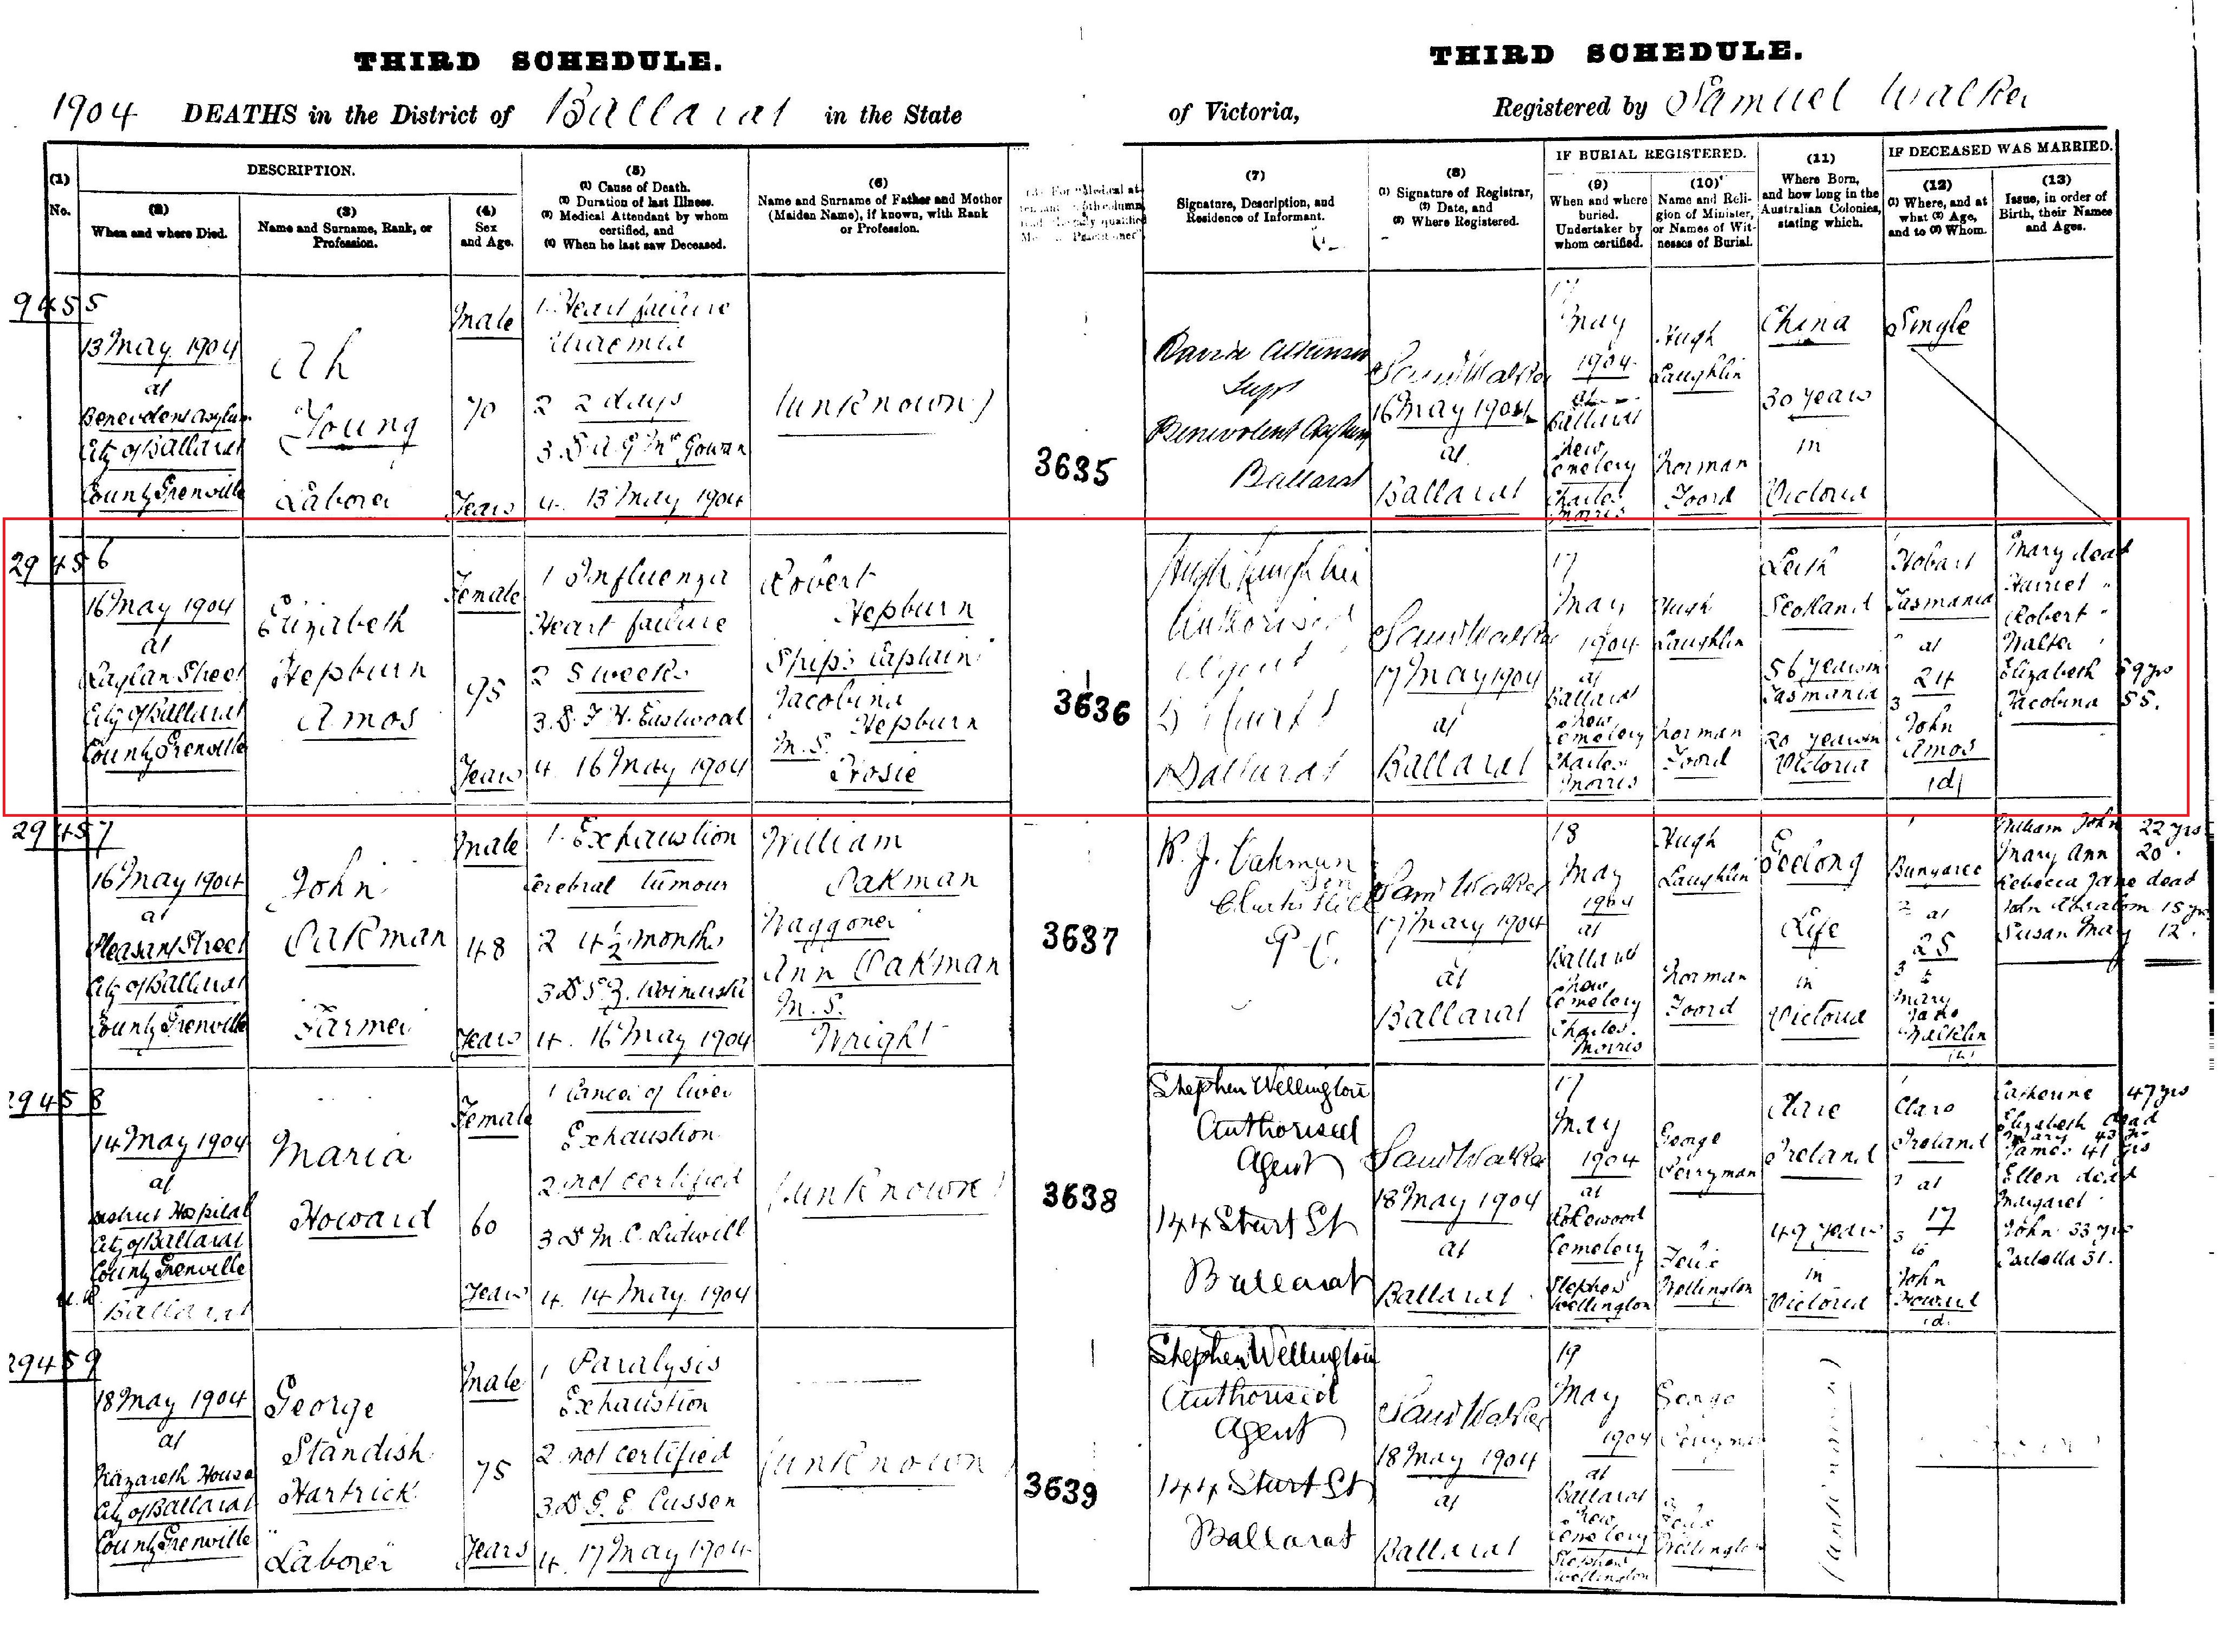 THIRD SCHEDULE.
THIRD SCHEDULE.
1904 DEATHS in the District of Ballarat in the State
of Victoria, Registered by Samuel Walker
(1)
No.
DESCRIPTION.
(2)
When and where Died.
(3)
Name and Surname, Rank, or
Profession.
(4)
Sex
and Age.
(5)
(1) Cause of Death.
(2) Duration of last Illness.
(3) Medical Attendant by whom
certified, and
(4) When he last saw Deceased.
(6)
Name and Surname of Father and Mother
(Maiden Name), if known, with Rank
or Profession.
(7)
Signature, Description, and
Residence of Informant.
(8)
(1) Signature of Registrar,
(2) Date, and
(3) Where Registered.
IF BURIAL REGISTERED.
(9)
When and where
buried.
Undertaker by
whom certified.
(10)
Name and Reli-
gion of Minister,
or Names of Wit-
nesses of Burial.
(11)
Where Born,
and how long in the
Australian Colonies,
stating which.
IF DECEASED WAS MARRIED.
(12)
(1) Where, and at
what (2) Age,
and to (3) Whom.
(13)
Issue, in order of
Birth, their Names
and Ages.
9455
13 May 1904
at
Benevolent Asylum
City of Ballarat
County Grenville
Ah
Young
Laborer
Male
70
Years
1. Heart failure
Uraemia
2 2 days
3. Dr A G McGowan
4. 13 May 1904
(unknown)
3635
David Atkinson
Supt
Benevolent Asylum
Ballarat
Saml Walker
16 May 1904
at
Ballarat
17
May
1904
at
Ballarat
New
Cemetery
Charles
Morris
Hugh
Laughlin
Norman
Foord
China
30 years
in
Victoria
Single
29456
16 May 1904
at
Raglan Street
City of Ballarat
County Grenville
Elizabeth
Hepburn
Amos
Female
95
Years
1 Influenza
Heart failure
2 5 weeks
3. Dr F H Eastwood
4. 16 May 1904
Robert
Hepburn
Ship's Captain
Jacobina
Hepburn
M.S.
Brosie
3636
Hugh Laughlin
Authorised
Agent
Ballarat
Saml Walker
17 May 1904
at
Ballarat
17
May
1904
at
Ballarat
New
Cemetery
Charles
Morris
Hugh
Laughlin
Norman
Foord
Leith
Scotland
56 years in
Tasmania
20 years in
Victoria
Hobart
Tasmania
2 at
24
3
John
Amos
(d)
Mary dead
Harriet "
Robert "
Walter "
Elizabeth 59 yrs
Jacobina 55.
29457
16 May 1904
at
Pleasant Street
City of Ballarat
County Grenville
John
Oakman
Farmer
Male
48
Years
1. Exhaustion
Cerebral tumour
2 4½ months
3 Dr
4. 16 May 1904
William
Oakman
Waggoner
Ann Oakman
M.S.
Wright
3637
W. J. Oakman
Son
P.O.
Saml Walker
17 May 1904
at
Ballarat
18
May
1904
at
Ballarat
New
Cemetery
Charles
Morris
Hugh
Laughlin
Norman
Foord
Geelong
Life
in
Victoria
1
Bungaree
2 at
25
3 to
Mary
Jane
William John 22 yrs
Mary Ann 20 "
Rebecca Jane dead
John Absalom 15 yrs
Susan May 12 "
29458
14 May 1904
at
District Hospital
City of Ballarat
County Grenville
Ballarat
Maria
Howard
Female
60
Years
1 Cancer of liver
Exhaustion
2 not certified
3 Dr M. C. Lidwill
4. 14 May 1904
(unknown)
3638
Stephen Wellington
Authorised
Agent
144 Sturt St
Ballarat
Saml Walker
18 May 1904
at
Ballarat
17
May
1904
at
Rokewood
Cemetery
Stephen
Wellington
George
Perryman
Felix
Wellington
Clare
Ireland
49 years
in
Victoria
1
Clare
Ireland
2 at
17
3 to
John
Howard
(d)
Catherine 47 yrs
Elizabeth dead
Mary 43 yrs
James 41 yrs
Ellen dead
Margaret "
John 33 yrs
31.
29459
18 May 1904
at
Nazareth House
City of Ballarat
County Grenville
George
Standish
Hartrick
Laborer
Male
75
Years
1 Paralysis
Exhaustion
2 not certified
3 Dr G. E. Cussen
4. 17 May 1904
(unknown)
3639
Stephen Wellington
Authorised
Agent
144 Sturt St
Ballarat
Saml Walker
18 May 1904
at
Ballarat
19
May
1904
at
Ballarat
New
Cemetery
Stephen
Wellington
George
Perryman
Felix
Wellington
(unknown)